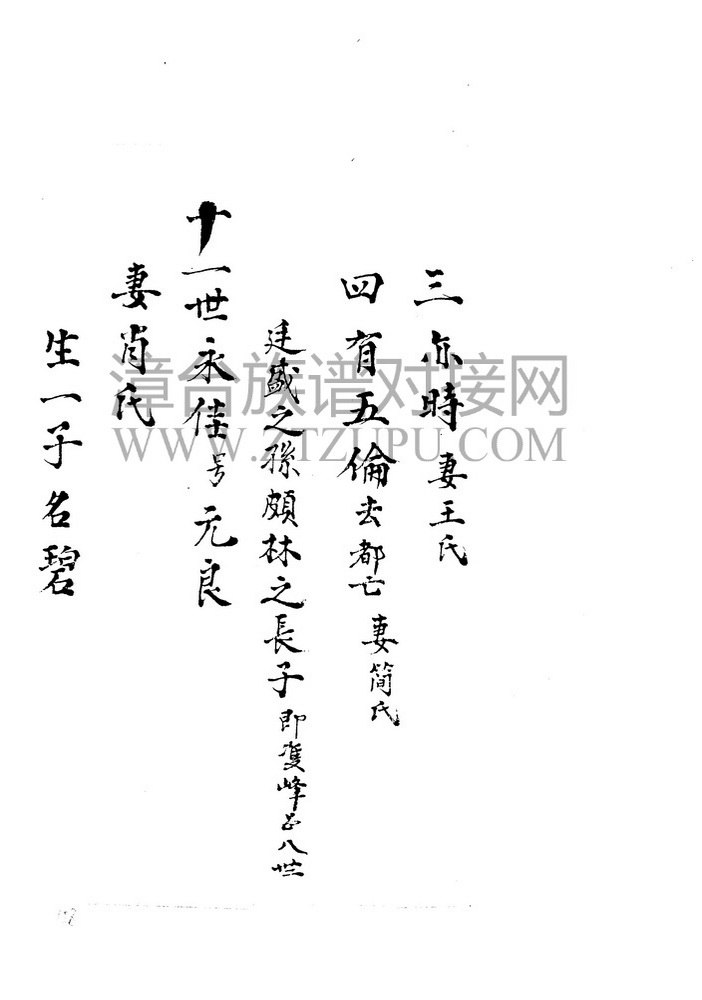 三亦時 妻王氏
四有五倫 去都亡 妻簡氏
廷盛之孫頗林之長子 即雙峰八世
十一世永佳 号元良
妻肖氏
生一子名碧
漳台族谱对接网
WWW.ZTZUPU.COM